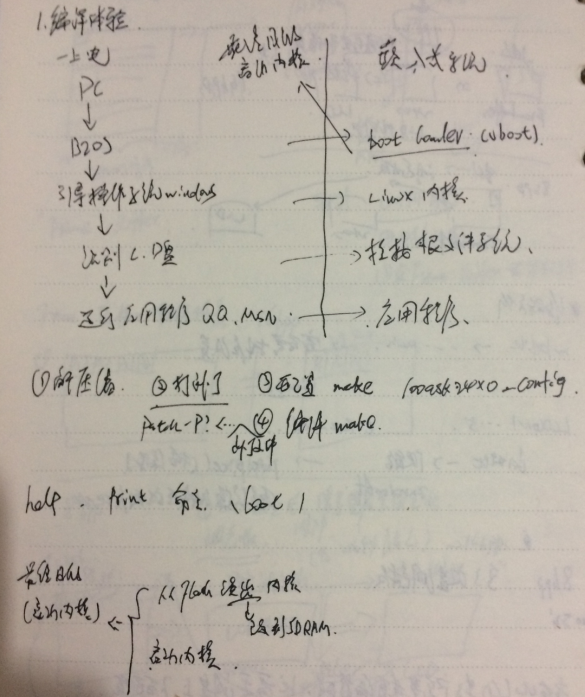 1.编译体验.
一上电
PC
BIOS
引导操作系统windows
识别C.D盘
运行应用程序QQ、MSN
最终目的
启动内核
嵌入式系统.
bootloader(uboot).
Linux内核
挂接根文件系统、
应用程序、
①解压缩. ②打补丁 ③配置 make 100ask24x0_config.
patch -P? ④编译 make.
help. print 命令、(boot)
最终目的
(启动内核)
从flash读出内核
读到SDRAM.
启动内核.